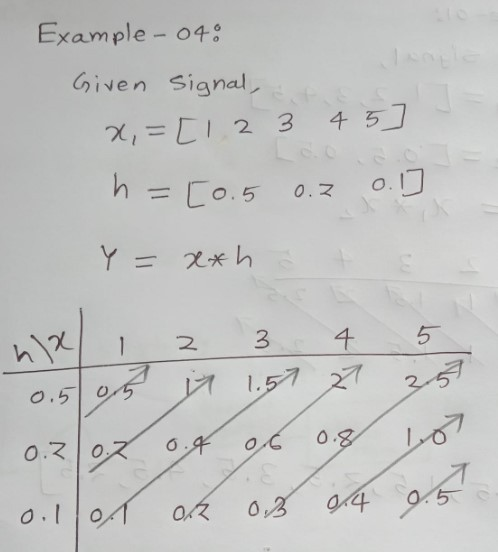 Example - 04:
Given Signal,
x₁ = [1 2 3 4 5]
h = [0.5 0.2 0.1]
Y = x*h
h\x 1 2 3 4 5
0.5 0.5 1 1.5 2 2.5
0.2 0.2 0.4 0.6 0.8 1.0
0.1 0.1 0.2 0.3 0.4 0.5